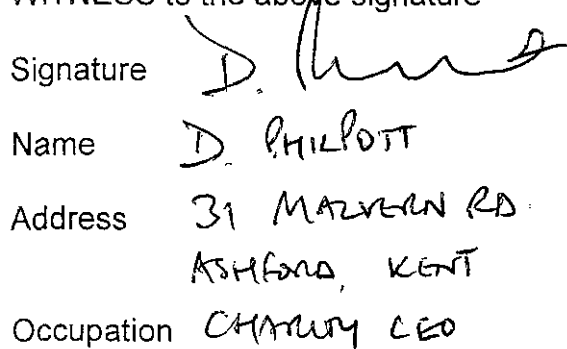 WITNESS to the above signature
Signature D.
Name D. PHILPOTT
Address 31 MALVERN RD.
ASHFORD, KENT
Occupation CHARITY CEO